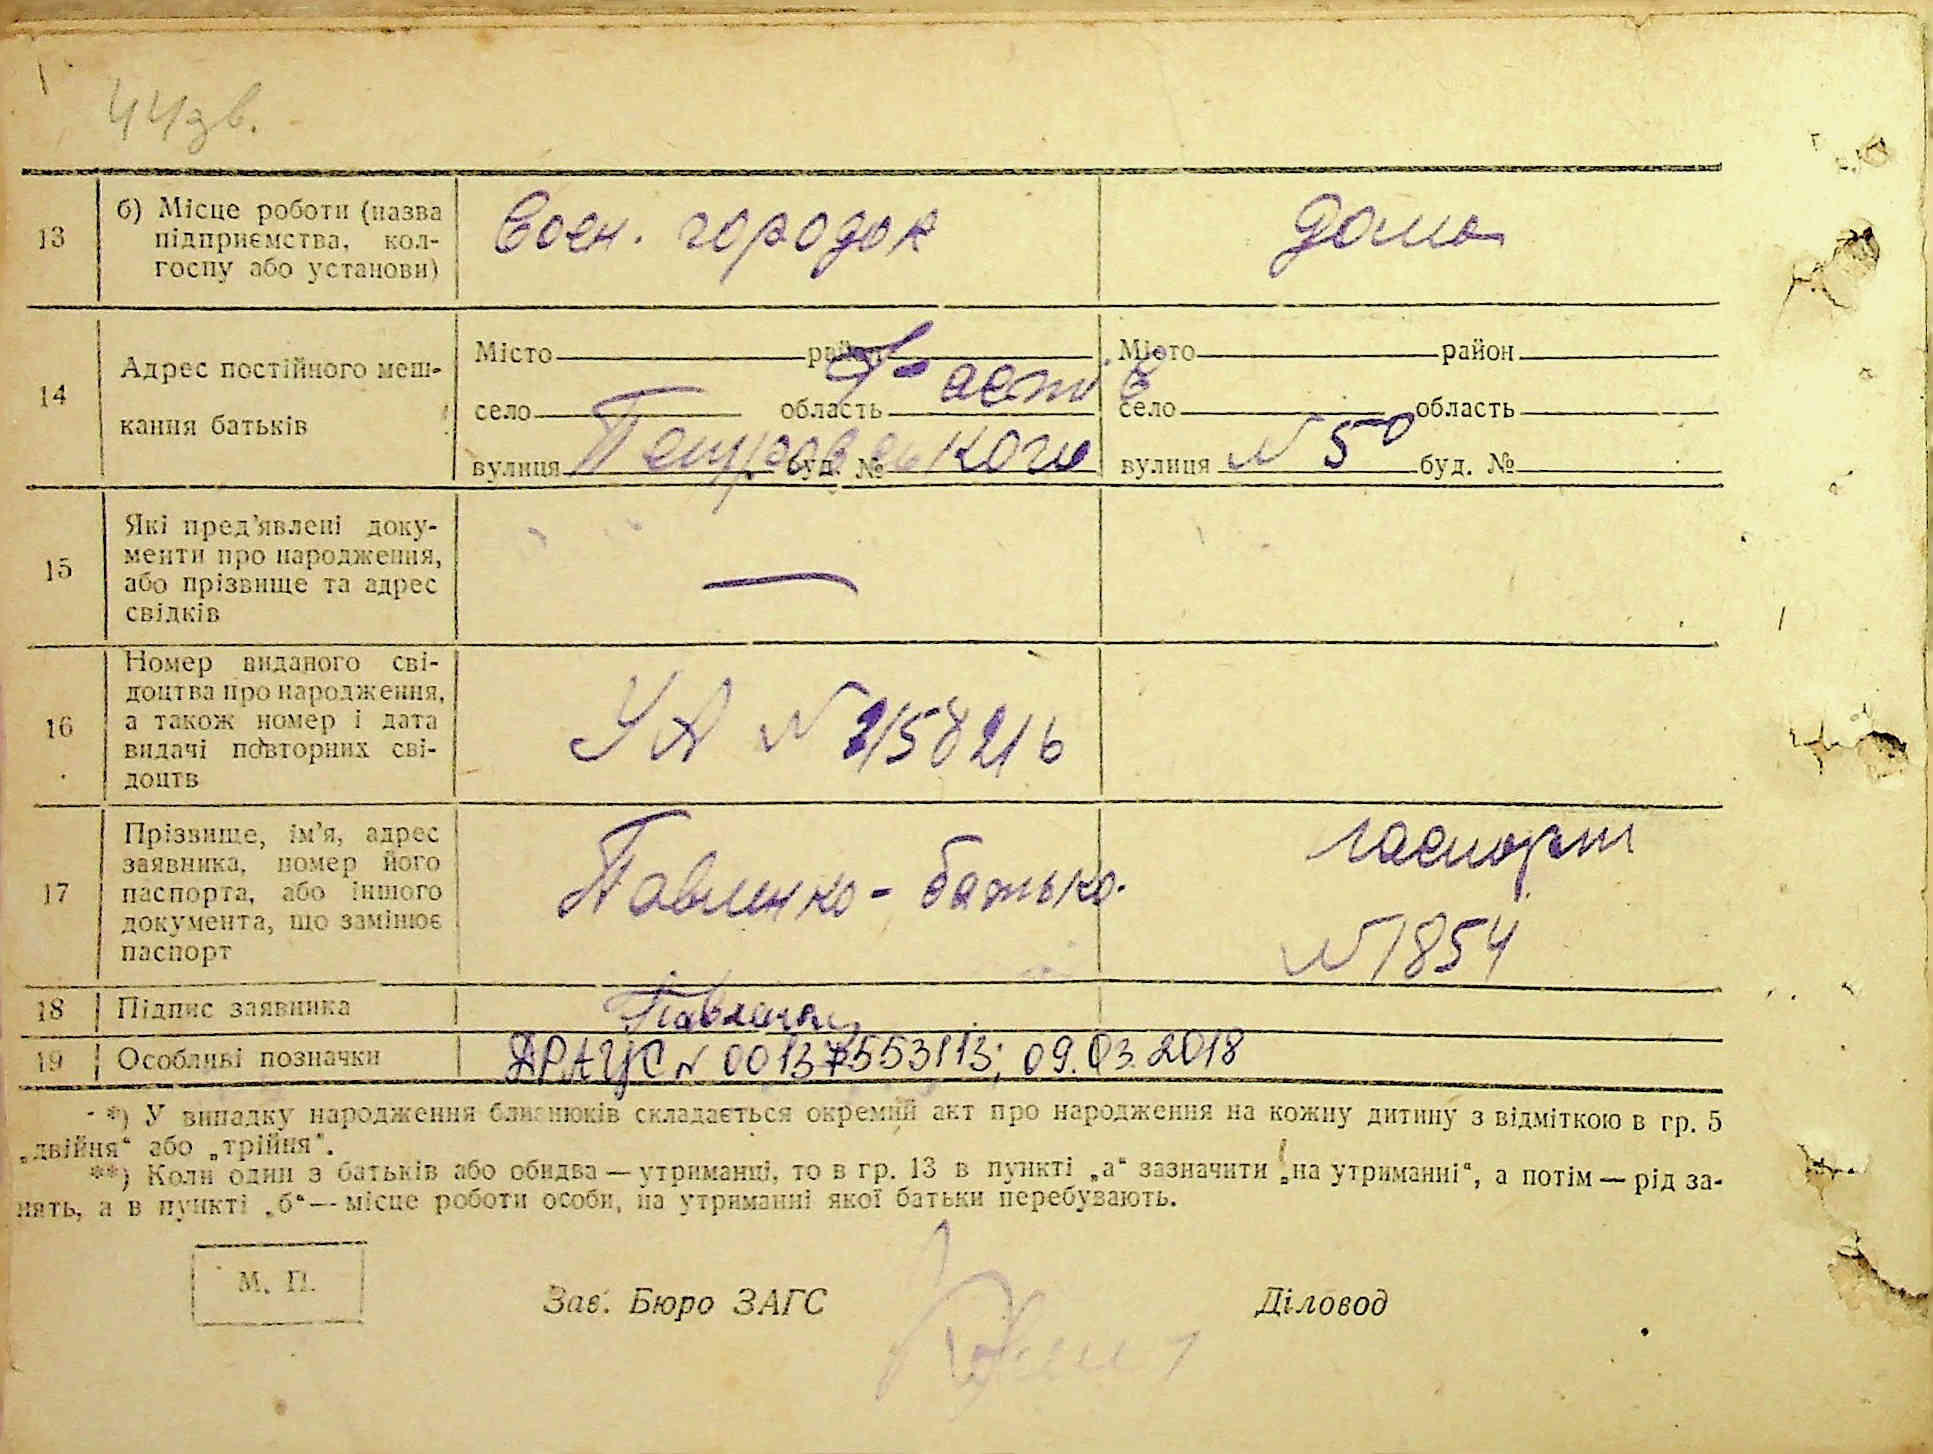 44зв.
13
б) Місце роботи (назва
підприємства, кол-
госпу або установи)
Воен. городок
дома
14
Адрес постійного меш-
кання батьків
Місто район
село область
вулиця Петровського буд. №
Місто район
село область
вулиця № 50 буд. №
15
Які пред’явлені доку-
менти про народження,
або прізвище та адрес
свідків
—
16
Номер виданого сві-
доцтва про народження,
а також номер і дата
видачі повторних сві-
доцтв
УА № 215821б
17
Прізвище, ім’я, адрес
заявника, номер його
паспорта, або іншого
документа, що замінює
паспорт
Павленко - батько.
паспорт
№ 1854
18
Підпис заявника
Павленко
19
Особливі позначки
ДРАЦС № 00137553113; 09.03.2018
*) У випадку народження близнюків складається окремий акт про народження на кожну дитину з відміткою в гр. 5
„двійня“ або „трійня“.
**) Коли один з батьків або обидва — утриманці, то в гр. 13 в пункті „а“ зазначити „на утриманні“, а потім — рід за-
нять, а в пункті „б“ — місце роботи особи, на утриманні якої батьки перебувають.
М. П.
Зав. Бюро ЗАГС
Діловод